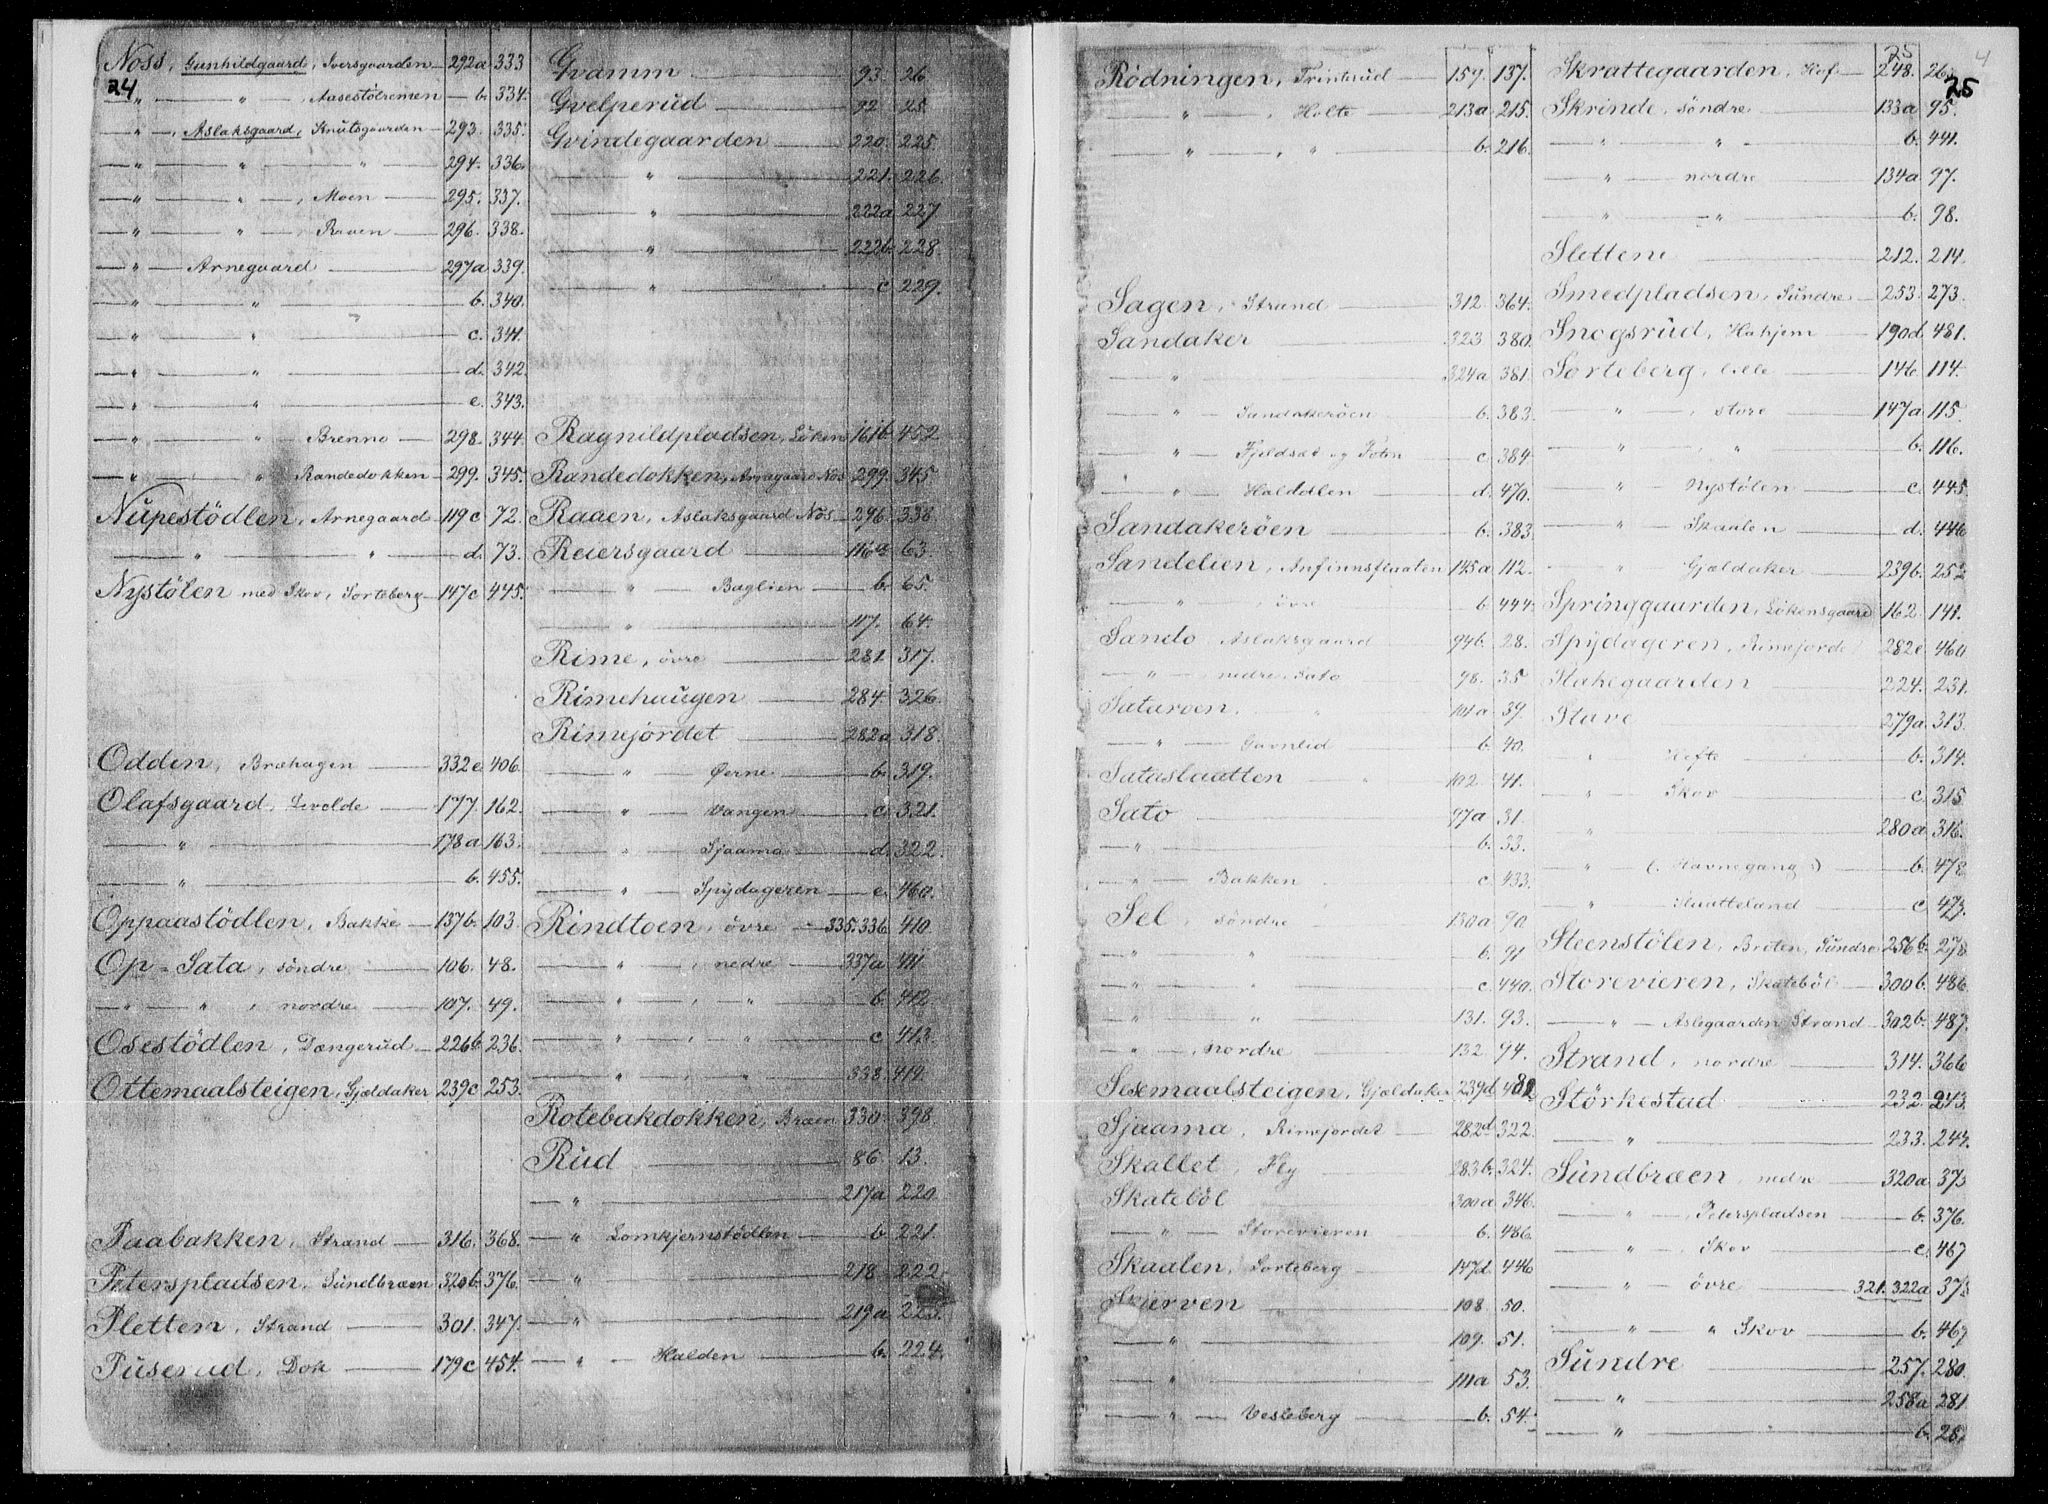 24
Noss, Gunhildgaard, Iversgaarden 292a 333
" " , Aasestölremen b. 334.
" , Aslaksgaard, Knutsgaarden 293. 335.
" " " 294. 336.
" " , Moen 295. 337.
" " Raaen 296. 338.
" Arnegaard 297a 339.
" " b. 340.
" " c. 341.
" " d. 342.
" " e. 343.
" " Brenno 298. 344.
" " Randedokken 299. 345.
Nupestödlen, Arnegaard 119c 72.
" " d. 73.
Nystölen med Skov, Sorteberg 147c 445.
Odden, Bræhagen 332e 406.
Olafsgaard, Levolde 177. 162.
" 178a 163.
" b. 455.
Oppaastödlen, Bakke 137b. 103.
Op-Sata, söndre 106. 48.
" " , nordre 107. 49.
Osestödlen, Dængerud 226b 236.
Ottemaalsteigen, Gjældaker 239c 253.
Paabakken, Strand 316. 368.
Peterspladsen, Sundbræen 320b 376.
Pletten, Strand 301. 347.
Puserud, Dok 179c 454.
Gvamm 93. 26
Gvelperud 92 25.
Gvindegaarden 220. 225.
" 221. 226.
" 222a 227
" 222b 228.
" c. 229.
Ragnildpladsen, Löken 161b 452
Randedokken, Arnegaard Nos 299. 345
Raaen, Aslaksgaard Nos 296. 338
Reiersgaard 116a 63.
" Baglien b. 65.
" 117. 64.
Rime, övre 281. 317.
Rimehaugen 284. 326.
Rimejordet 282a 318.
" Øerne b. 319.
" Vangen c. 321.
" Sjaama d. 322.
" Spydageren e. 460.
Rindtoen, övre 335.336 410
" , nedre 337a 411
" , " b. 412
" , " c. 413.
" , " 338. 414.
Rotebakdokken, Bræen 330. 398
Rud 86. 13.
" 217a 220.
" Lomkjernstödlen b. 221.
" 218. 222.
" 219a 223.
" Halden b. 224.
25
4
25
Rödningen, Trintrud 157. 137.
" , Holte 213a 215.
" , " b. 216.
Sagen, Strand 312 364.
Sandaker 323 380.
" 324a 381.
" Sandakeröen b. 383.
" Fjeldsæt og Toten c. 384
" Halddlen d. 470.
Sandakeröen b. 383
Sandelien, Anfinnsflaaten 145a 112.
" , övre b. 444.
Sando, Aslaksgaard 94b. 28.
" , nedre Sato 98. 35
Sataroen, " 101a 39.
" Gavnlid b. 40.
Sataslaatten " 102. 41.
Sato 97a 31.
" b. 33.
" Bakken c. 433.
Sel, söndre 130a 90.
" " b. 91
" " c. 440.
" " 131. 93.
" , nordre 132 94.
Sesemaalsteigen, Gjældaker 239d 482
Sjaama, Rimejordet 282d 322.
Skallet, Fly 283b. 324.
Skateböl 300a 346.
" Storevieren b. 486.
Skaalen, Sorteberg 147d. 446
Skierven " 108. 50.
" 109. 51.
" 111a 53.
" Vesleberg b. 54.
Skrattegaarden, Hof 248.
Skrinde, söndre 133a 95.
" " b. 441.
" nordre 134a 97.
" " b. 98.
Slettene 212. 214.
Smedpladsen, Sundre 253. 273.
Snogsrud, Hahjem 190d 481.
Sorteberg, lille 146. 114.
" , store 147a 115.
" , " b. 116.
" Nystölen c. 445
" Skaalen d. 446
" Gjældaker 239b. 252
Springgaarden, Lökensgaard 162. 141.
Spydageren, Rimejorde 282e 460
Stakegaarden 224. 231.
Stave 279a 313.
" Hefte b. 314.
" Skov c. 315
" 280a 316.
" (: Havnegang :) b. 478
" Slaatteland c. 473.
Steenstölen, Breten, Sundre 256b. 278
Storevieren, Skateböl 300b. 486
" Aslegaarden Strand 302b. 487.
Strand, nordre 314. 366
Störkestad 232. 243.
" 233. 244.
Sundbræen, nedre 320a 375
" , Peterspladsen b. 376.
" , Skov c. 467
" övre 321.322a 378
" " Skov b. 469
Sundre 257. 280.
" 258a 281
" b. 282